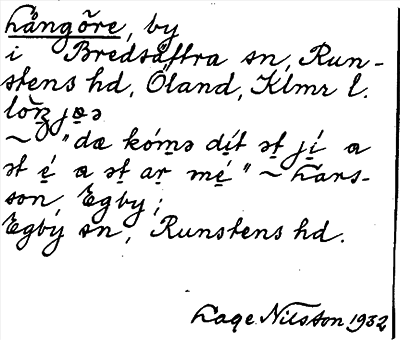 Långöre, by
i Bredsätra sn, Run-
stens hd, Öland, Klmr l.
~ "dæ kómə dít ət jí a
ət é a ət ar mé" ~ Lars-
son, Egby;
Egby sn, Runstens hd.
Lage Nilsson 1932